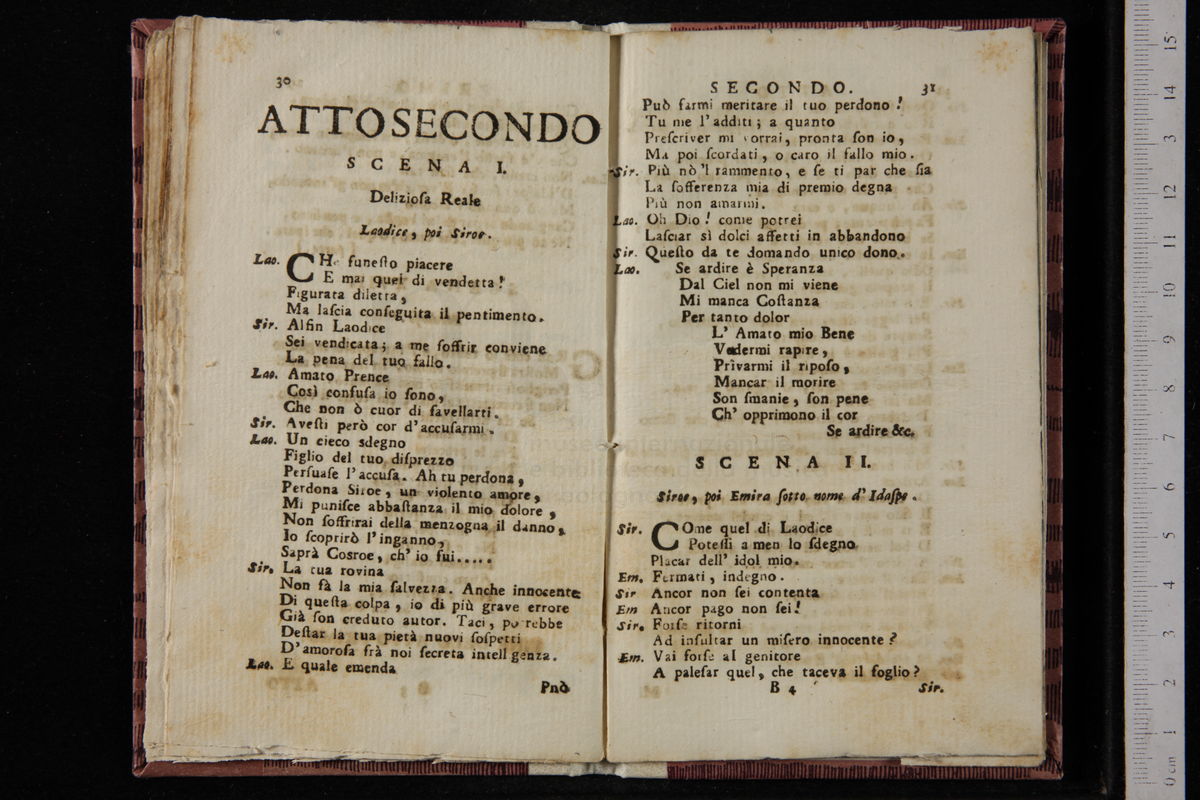 30
ATTO SECONDO
SCENA I.
Delizioſa Reale
Laodice, poi Siroe.
Lao. CHe funeſto piacere
E mai quel di vendetta!
Figurata diletta,
Ma laſcia conſeguita il pentimento.
Sir. Alfin Laodice
Sei vendicata; a me ſoffrir conviene
La pena del tuo fallo.
Lao. Amato Prence
Così confuſa io ſono,
Che non ò cuor di favellarti.
Sir. Aveſti però cor d'accuſarmi.
Lao. Un cieco sdegno
Figlio del tuo diſprezzo
Perſuaſe l'accuſa. Ah tu perdona,
Perdona Siroe, un violento amore,
Mi puniſce abbaſtanza il mio dolore,
Non ſoffrirai della menzogna il danno,
Io ſcoprirò l'inganno,
Saprà Cosroe, ch' io fui.....
Sir. La tua rovina
Non fà la mia ſalvezza. Anche innocente
Di queſta colpa, io di più grave errore
Già ſon creduto autor. Taci, po rebbe
Deſtar la tua pietà nuovi ſoſpetti
D'amoroſa frà noi ſecreta intell genza.
Lao. E quale emenda
Può
SECONDO. 31
Può farmi meritare il tuo perdono!
Tu me l'additi; a quanto
Preſcriver mi vorrai, pronta ſon io,
Ma poi ſcordati, o caro il fallo mio.
Sir. Più nò 'l rammento, e ſe ti par che ſia
La ſofferenza mia di premio degna
Più non amarmi.
Lao. Oh Dio! come potrei
Laſciar sì dolci affetti in abbandono
Sir. Queſto da te domando unico dono.
Lao. Se ardire è Speranza
Dal Ciel non mi viene
Mi manca Coſtanza
Per tanto dolor
L' Amato mio Bene
Vedermi rapire,
Privarmi il ripoſo,
Mancar il morire
Son ſmanie, ſon pene
Ch' opprimono il cor
Se ardire &c.
SCENA II.
Siroe, poi Emira ſotto nome d' Idaſpe.
Sir. COme quel di Laodice
Poteſſi a men lo ſdegno
Placar dell' idol mio.
Em. Fermati, indegno.
Sir Ancor non ſei contenta
Em Ancor pago non ſei!
Sir. Forſe ritorni
Ad inſultar un miſero innocente?
Em. Vai forſe al genitore
A paleſar quel, che taceva il foglio?
B 4 Sir.
15
14
13
12
11
10
9
8
7
6
5
4
3
2
1
0 cm